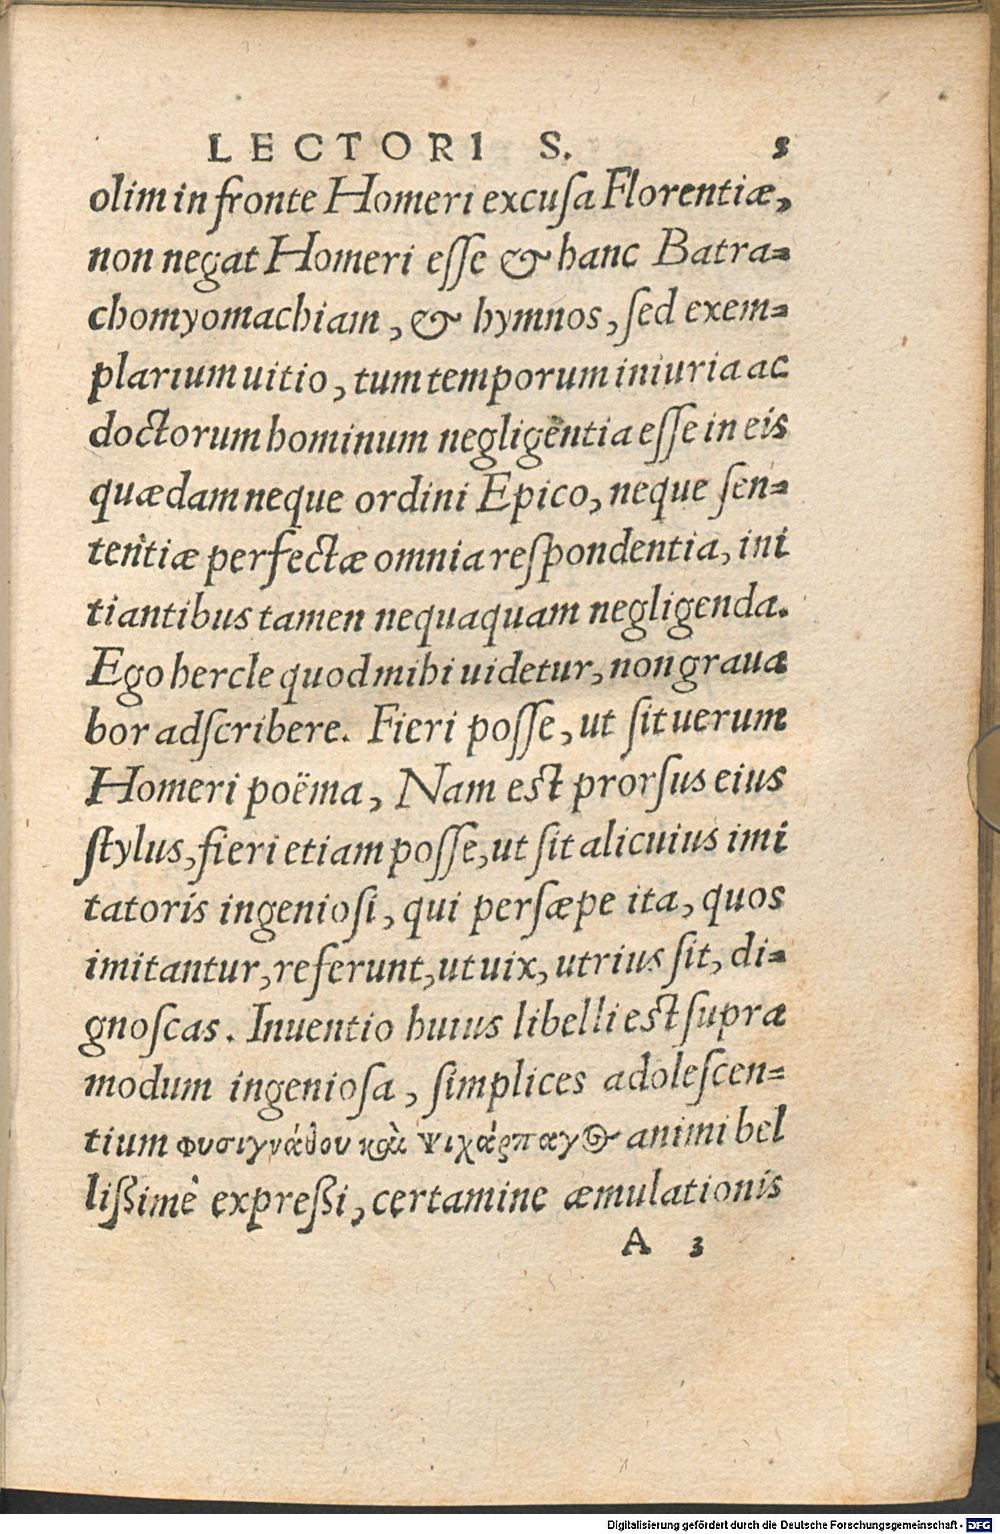 LECTORI S. 5
olim in fronte Homeri excuſa Florentiæ,
non negat Homeri eſſe & hanc Batra=
chomyomachiam, & hymnos, ſed exem=
plarium uitio, tum temporum iniuria ac
doctorum hominum negligentia eſſe in eis
quædam neque ordini Epico, neque ſen=
tentiæ perfectæ omnia reſpondentia, ini
tiantibus tamen nequaquam negligenda.
Ego hercle quod mihi uidetur, non graua
bor adſcribere. Fieri poſſe, ut ſit uerum
Homeri poëma, Nam eſt prorſus eius
ſtylus, fieri etiam poſſe, ut ſit alicuius imi
tatoris ingenioſi, qui perſæpe ita, quos
imitantur, referunt, ut uix, utrius ſit, di=
gnoſcas. Inuentio huius libelli eſt ſupra
modum ingenioſa, ſimplices adoleſcen=
tium Φυσιγνάθου καὶ Ψιχάρπαγος animi bel
lißimè expreßi, certamine æmulationis
A 3
Digitalisierung gefördert durch die Deutsche Forschungsgemeinschaft - DFG